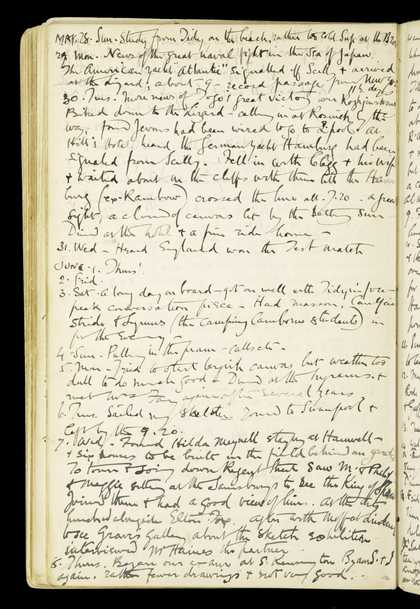 MAY. 28. Sun. Study from Tidy on the beach, rather too cold Sup at the
29. Mon. News of the great naval fight in the Sea of Japan
The American Yacht "Atlantic" signalled off Scilly & arrived
at the Lizard, about 9 - record passage from New York
30. Tues. More news of great victory over
Biked down to the Lizard - calling in at on the
way. found Jevons had been wired to go to
Hill's Hotel heard the German Yacht Hamburg had been
signaled from Scilly. Fell in with & his wife
& waited about on the cliffs with them till the Ham-
burg (ex-Rainbow) crossed the line at 7.20 - a great
sight, a cloud of canvas lit by the setting sun
Dined at the hotel & a fine ride home -
31. Wed - Heard England won the Test match
JUNE. 1. Thurs.
2. Frid.
3. Sat. A long day on board - got on well with Tidy in
conversation piece - Had
Stride & (the camping Camborne students) in
for the Evening -
4. Sun. Pulling in the pram - calls etc -
5. Mon - Tried to start canvas but weather too
dull to do much good - Dined at the &
met for several years
6. Tues. Sailed my skeleton round to Swanpool &
left by the 9.20.
7. Wed - Found Hilda Meynell staying at
& six houses to be built in the field behind our garden
To town & going down Regent Street saw Mr &
& Maggie sitting at the to see the King of Spain
Joined them & had a good view of him. At the
after with
to see Graves Gallery about the sketch exhibition
interviewed Mr Haines his partner -
8. Thurs. Began our exam at S. Kensington & I
again. rather fewer drawings & not very good.